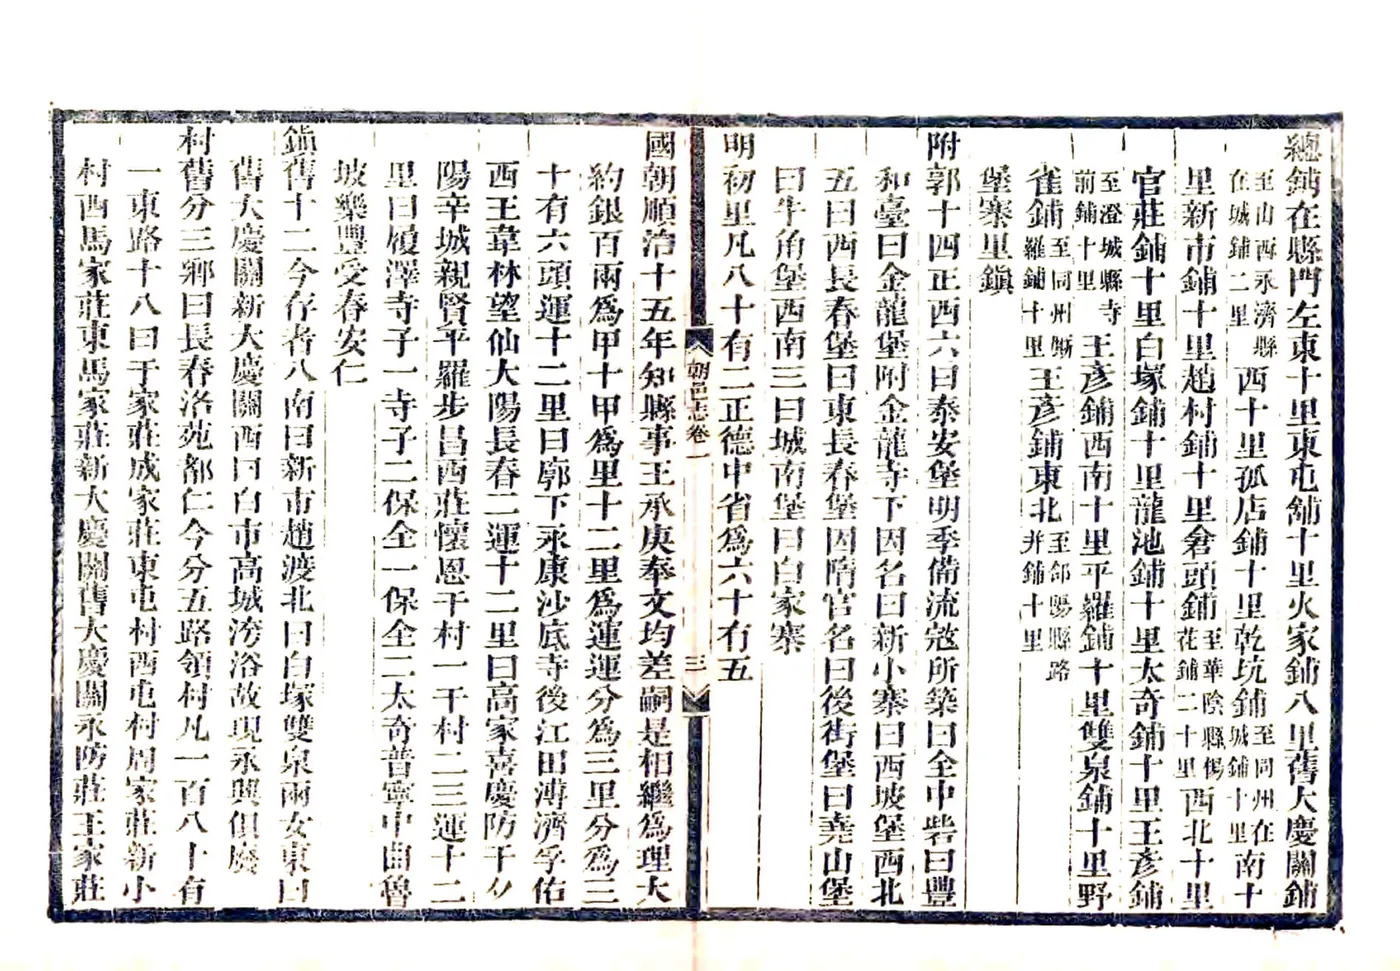 總鋪在縣門左東十里東屯舗十里火家鋪八里舊大慶關鋪
至山西永濟縣在城鋪二里西十里孤店鋪十里乾坑鋪至同州在城鋪十里南十
里新市鋪十里趙村鋪十里倉頭鋪至華陰縣傷花鋪二十里西北十里
官莊鋪十里白塚鋪十里龍池鋪十里太奇鋪十里王彥鋪
至澄城縣寺前鋪十里王彥鋪西南十里平羅鋪十里雙泉鋪十里野
雀鋪至同州蘄羅鋪十里王彥鋪東北至郃陽縣路井鋪十里
堡寨里鎮
附郭十四正西六曰泰安堡明季備流寇所築曰全中砦曰豐
和臺曰金龍堡附金龍寺下因名曰新小寨曰西坡堡西北
五曰西長春堡曰東長春堡因隋官名曰後街堡曰堯山堡
曰牛角堡西南三曰城南堡曰白家寨
明初里凡八十有二正德中省為六十有五
朝邑志卷一
三
國朝順治十五年知縣事王承庚奉文均差嗣是相繼為理大
約銀百兩為甲十甲為里十二里為運運分為三里分為三
十有六頭運十二里曰廓下永康沙底寺後江田溥濟孚佑
西王韋林望仙大陽長春二運十二里曰高家喜慶防干
陽辛城親賢平羅步昌西莊懷恩干村一干村二三運十二
里曰履澤寺子一寺子二保全一保全二太奇普寧中曲魯
坡樂豐受春安仁
鎮舊十二今存者八南曰新市趙渡北曰白塚雙泉兩女東曰
舊大慶關新大慶關西曰白市高城涝浴故現永興俱廢
村舊分三鄉曰長春洛苑都仁今分五路領村凡一百八十有
一東路十八曰于家莊成家莊東屯村西屯村周家莊新小
村西馬家莊東馬家莊新大慶關舊大慶關永防莊王家莊